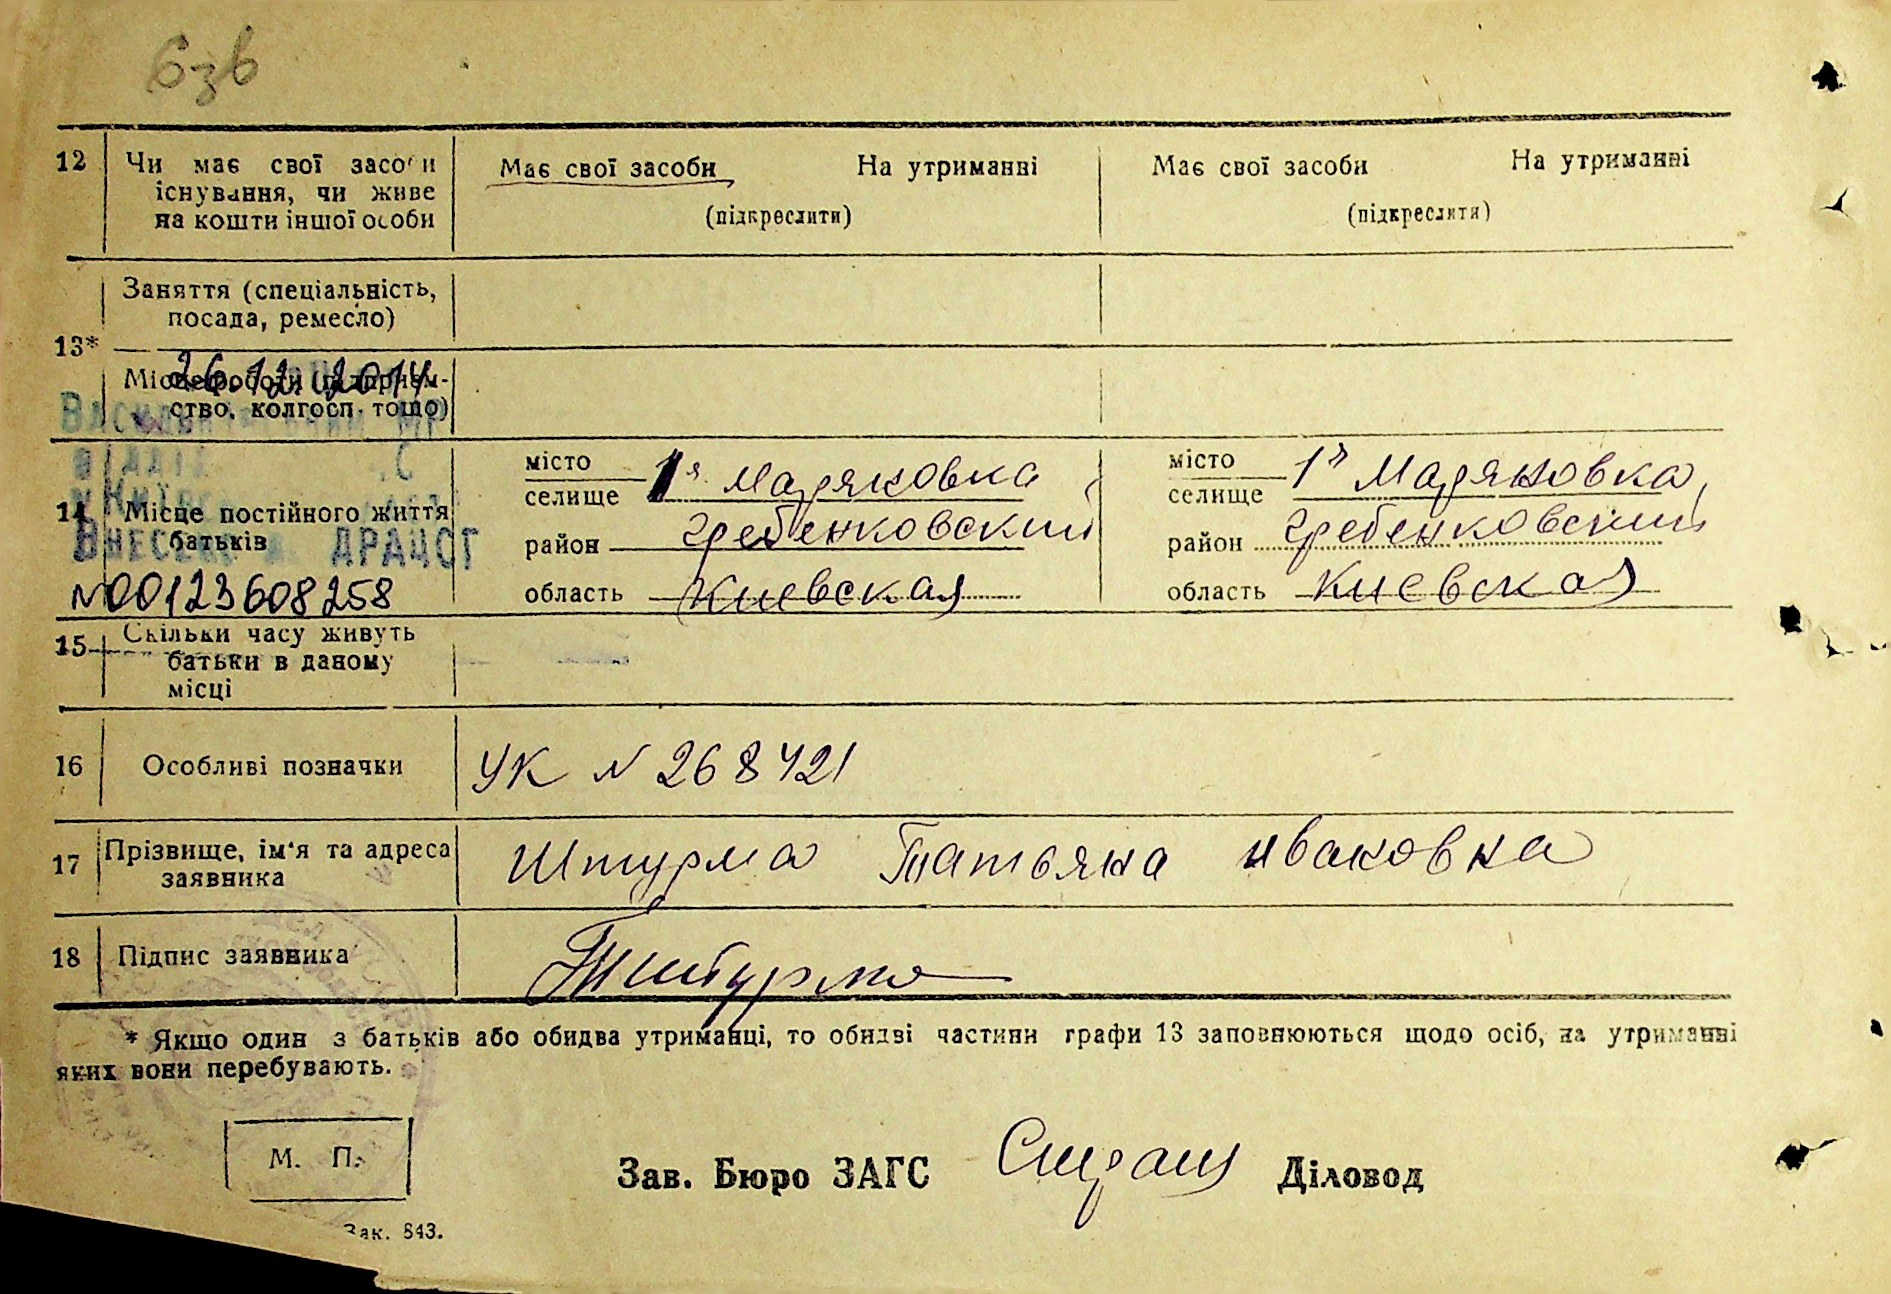 6зв
12 Чи має свої засоби Має свої засоби На утриманні Має свої засоби На утриманні
існування, чи живе
на кошти іншої особи (підкреслити) (підкреслити)
Заняття (спеціальність,
посада, ремесло)
13*
26.12.2014
Місце роботи (підприєм-
ство, колгосп тощо)
місто 1я Мазяковка місто 1я Мазяковка,
селище селище
14 Місце постійного життя
батьків район гребенковский район гребенковский
Внесено ДРАЦСГ
область Киевская область Киевская
N00123608258
15 Скільки часу живуть
батьки в даному
місці
16 Особливі позначки УК N 268421
17 Прізвище, ім'я та адреса Штурма Татьяна ивановна
заявника
18 Підпис заявника Штурма
* Якщо один з батьків або обидва утриманці, то обидві частини графи 13 заповнюються щодо осіб, на утриманні
яких вони перебувають.
М. П.
Зав. Бюро ЗАГС Діловод
Зак. 843.